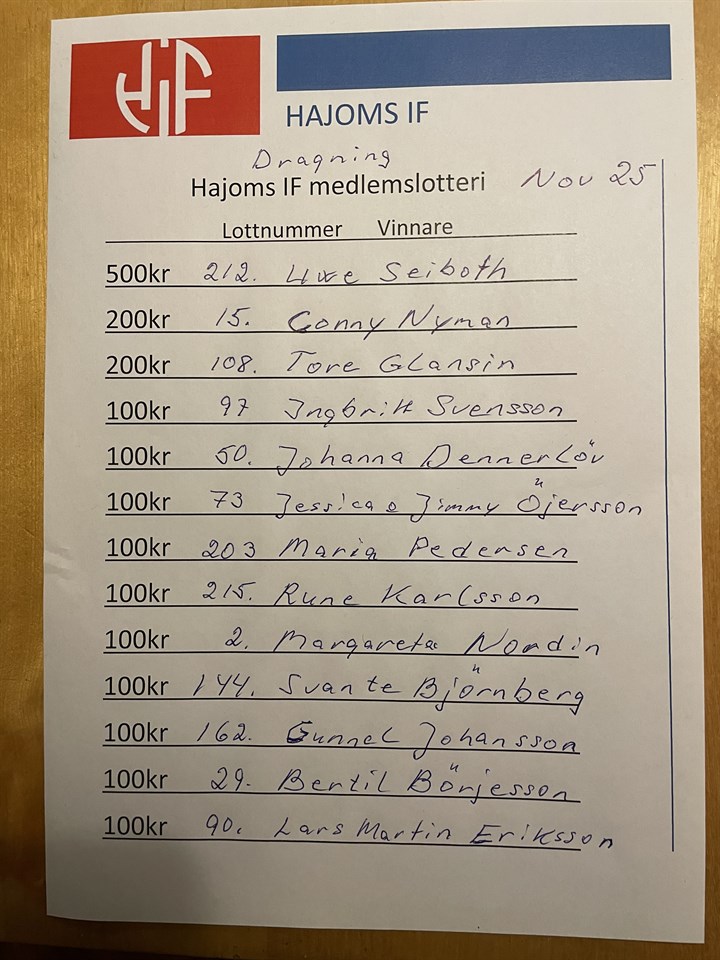 HIF
HAJOMS IF
Dragning
Hajoms IF medlemslotteri Nov 25
Lottnummer Vinnare
500kr 212. Uwe Seiboth
200kr 15. Conny Nyman
200kr 108. Tore Glansin
100kr 97 Ingbritt Svensson
100kr 50. Johanna Dennerlöv
100kr 73 Jessica o Jimmy Öjersson
100kr 203 Maria Pedersen
100kr 215. Rune Karlsson
100kr 2. Margareta Nordin
100kr 144. Svante Björnberg
100kr 162. Gunnel Johansson
100kr 29. Bertil Börjesson
100kr 90. Lars Martin Eriksson